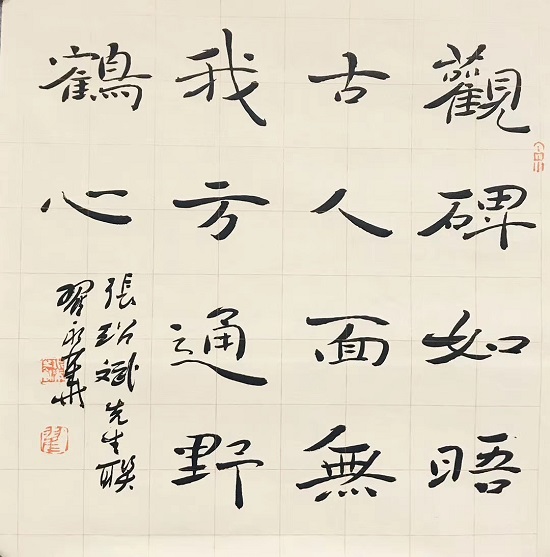 觀碑如晤
古人面無
我方通野
鶴心
張斌先生聯
翟永華